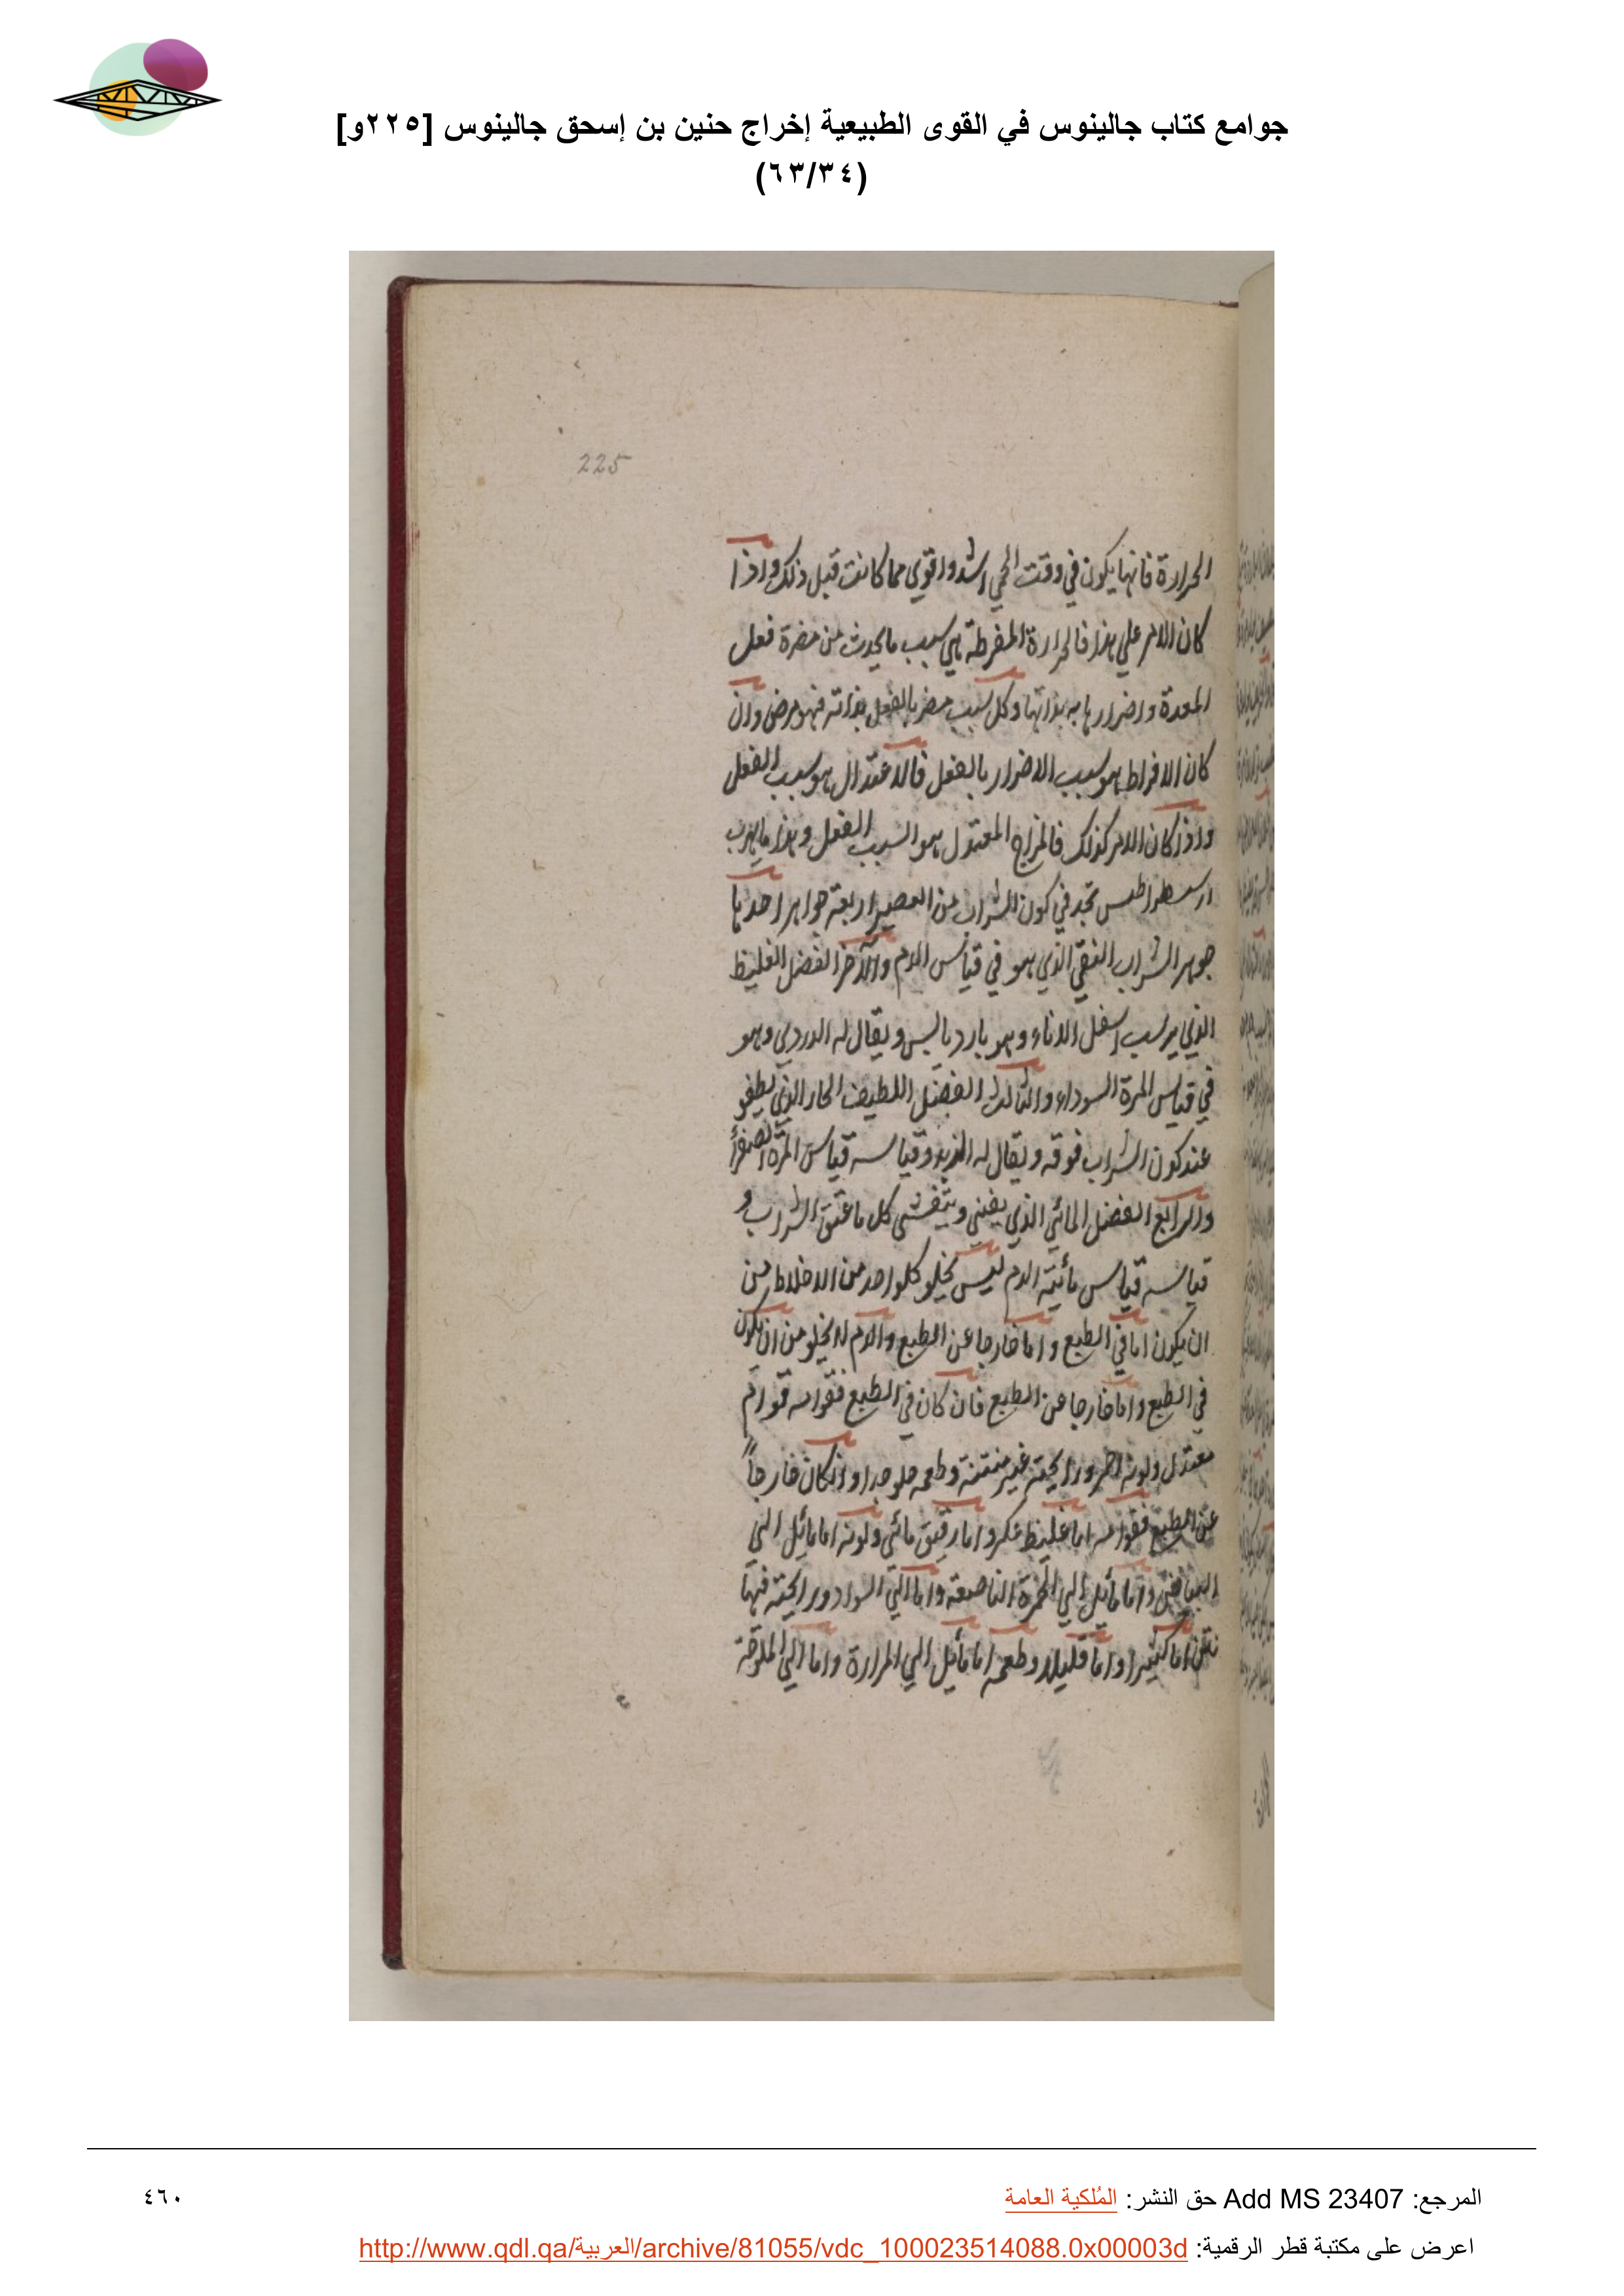 جوامع كتاب جالينوس في القوى الطبيعية إخراج حنين بن إسحق جالينوس [٢٢٥و]
(٦٣/٣٤)
225
الحرارة فانها يكون في وقت الحمي اشد واقوي مما كانت قبل ذلك واذا
كان الامر علي هذا فالحرارة المفرطة هي سبب ما يحدث من مضرة فعل
المعدة واضرارها به بذاتها وكل سبب مضر بالفعل بذاته فهو مرض وان
كان الافراط هو سبب الاضرار بالفعل فالاعتدال هو سبب الفعل
واذا كان الامر كذلك فالمزاج المعتدل هو السبب الفعل وهذا ما يهرب
ارسطراطس تجد في كون الشراب من العصير اربعة جواهر احدها
جوهر الشراب النقي الذي هو في قياس الدم والآخر الفضل الغليظ
الذي يرسب اسفل الاناء وهو بارد يابس ويقال له الدردي وهو
في قياس المرة السوداء والثالث الفضل اللطيف الحار الذي يطفو
عند كون الشراب فوقه ويقال له الزبد وقياسه قياس المرة الصفرأ
والرابع الفضل المائي الذي يفني ويتفشى كل ما عتق الشراب و
قياسه قياس مأئية الدم ليس يخلو كلواحد من الاخلاط من
ان يكون اما في الطبع واما خارجا عن الطبع والدم لا يخلو من ان يكون
في الطبع واما خارجا عن الطبع فان كان في الطبع فقوامه قوام
معتدل ولونه احمر ورايحته غير منتنة وطعمه حلو جدا وان كان خارجاً
عن الطبع فقوامه اما غليظ عكر واما رقيق مائى ولونه اما مائل الي
البياض واما مأئل الي الحمرة الناصعة واما الي السواد ورايحته فيها
نتن اما كثيرا واما قليلا وطعمه اما مأيل الي المرارة واما الي الملوحة
المرجع: Add MS 23407 حق النشر: المُلكية العامة
٤٦٠
اعرض على مكتبة قطر الرقمية: http://www.qdl.qa/العربية/archive/81055/vdc_100023514088.0x00003d